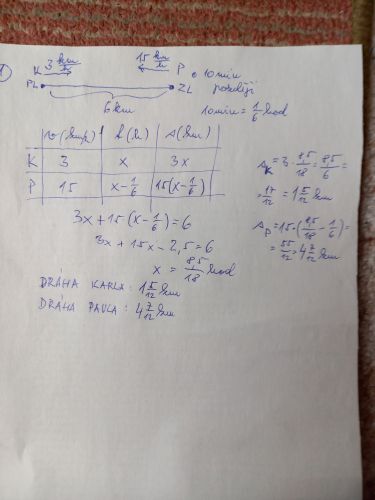 1) K 3 km/h 15 km/h P o 10 min
PL ZL později
6 km 10 min = 1/6 hod
v (km/h) t (h) s (km)
K 3 x 3x
P 15 x - 1/6 15(x - 1/6)
3x + 15(x - 1/6) = 6
3x + 15x - 2,5 = 6
x = 8,5/18 hod
DRÁHA KARLA: 1 5/12 km
DRÁHA PAVLA: 4 7/12 km
sK = 3 · 8,5/18 = 8,5/6 =
= 17/12 = 1 5/12 km
sP = 15 · (8,5/18 - 1/6) =
= 55/12 = 4 7/12 km